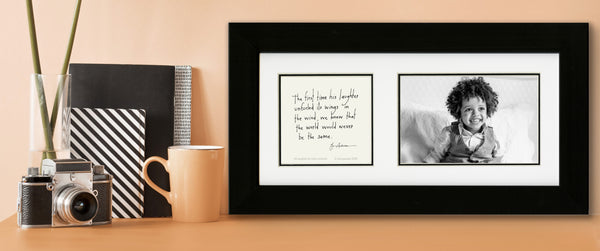 The first time his laughter
unfurled its wings in
the wind, we knew that
the world would never
be the same.